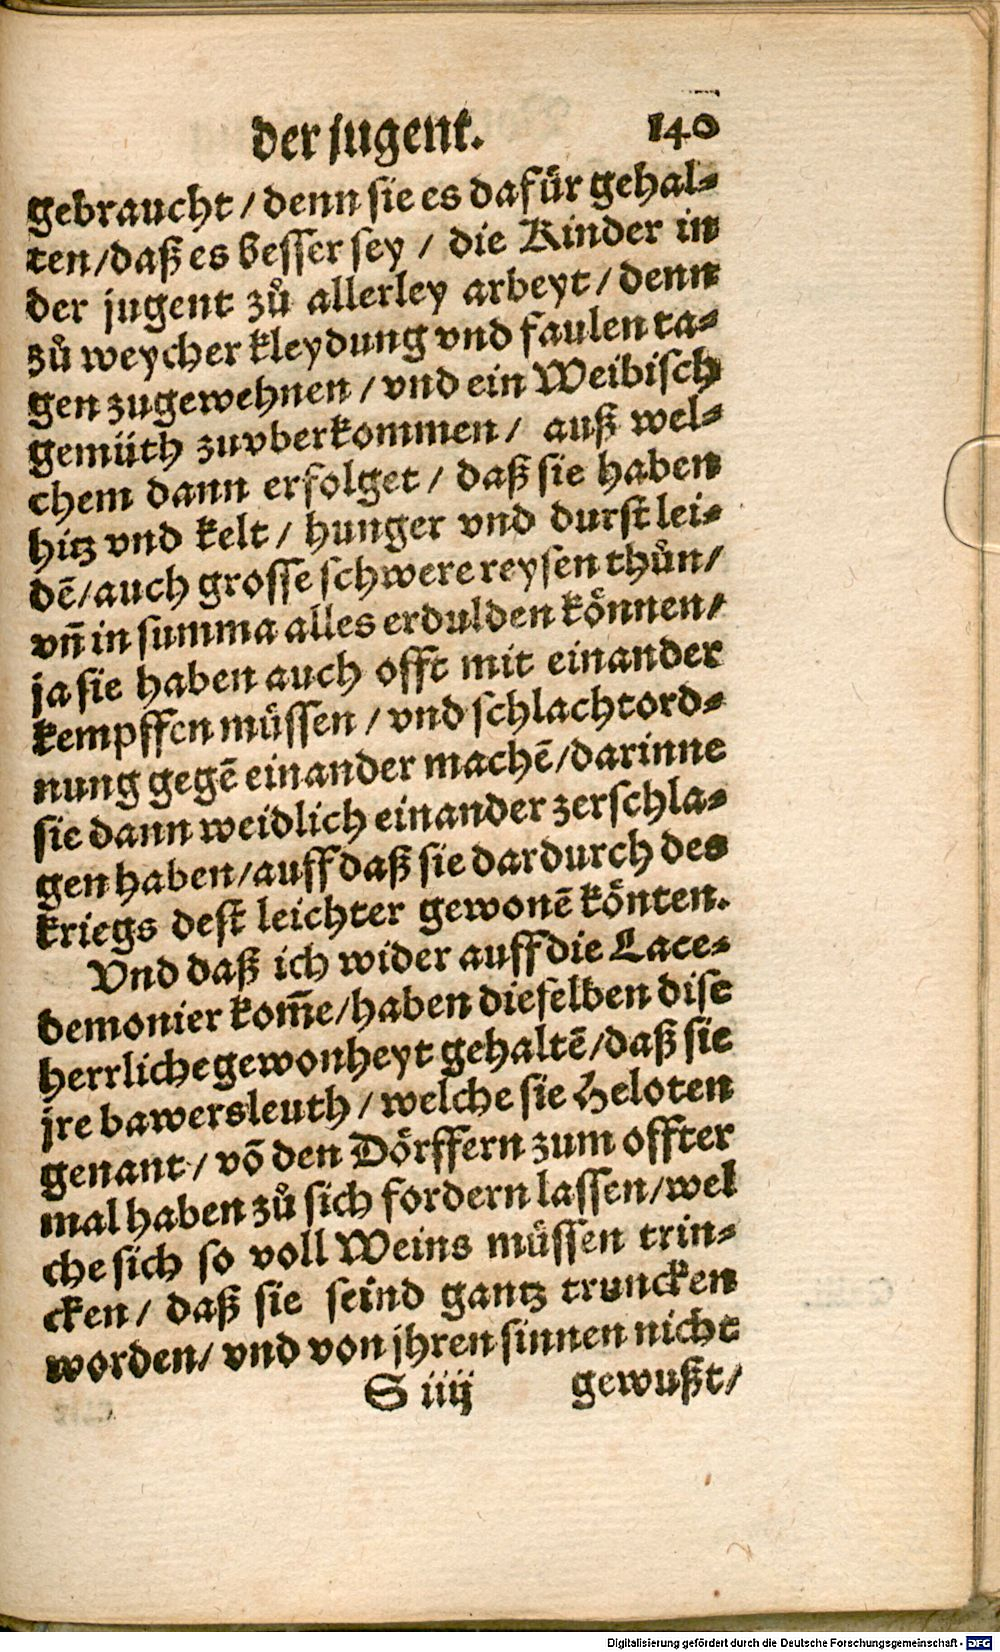 der jugent. 140
gebraucht / denn sie es dafür gehal⸗
ten/daß es besser sey / die Kinder in
der jugent zů allerley arbeyt / denn
zů weycher kleydung vnd faulen ta⸗
gen zugewehnen / vnd ein Weibisch
gemüth zuvberkommen / auß wel⸗
chem dann erfolget / daß sie haben
hitz vnd kelt / hunger vnd durst lei⸗
dē/auch grosse schwere reysen thůn/
vn̄ in summa alles erdulden können/
ja sie haben auch offt mit einander
kempffen müssen / vnd schlachtord⸗
nung gegē einander machē/darinne
sie dann weidlich einander zerschla⸗
gen haben/auff daß sie dardurch des
kriegs dest leichter gewonē könten.
Vnd daß ich wider auff die Lace⸗
demonier kom̄e/haben dieselben dise
herrliche gewonheyt gehaltē/daß sie
jre bawersleuth / welche sie Heloten
genant / võ den Dörffern zum offter
mal haben zů sich fordern lassen/wel
che sich so voll Weins müssen trin⸗
cken / daß sie seind gantz truncken
worden/ vnd von jhren sinnen nicht
S iiij gewußt/
Digitalisierung gefördert durch die Deutsche Forschungsgemeinschaft - DFG